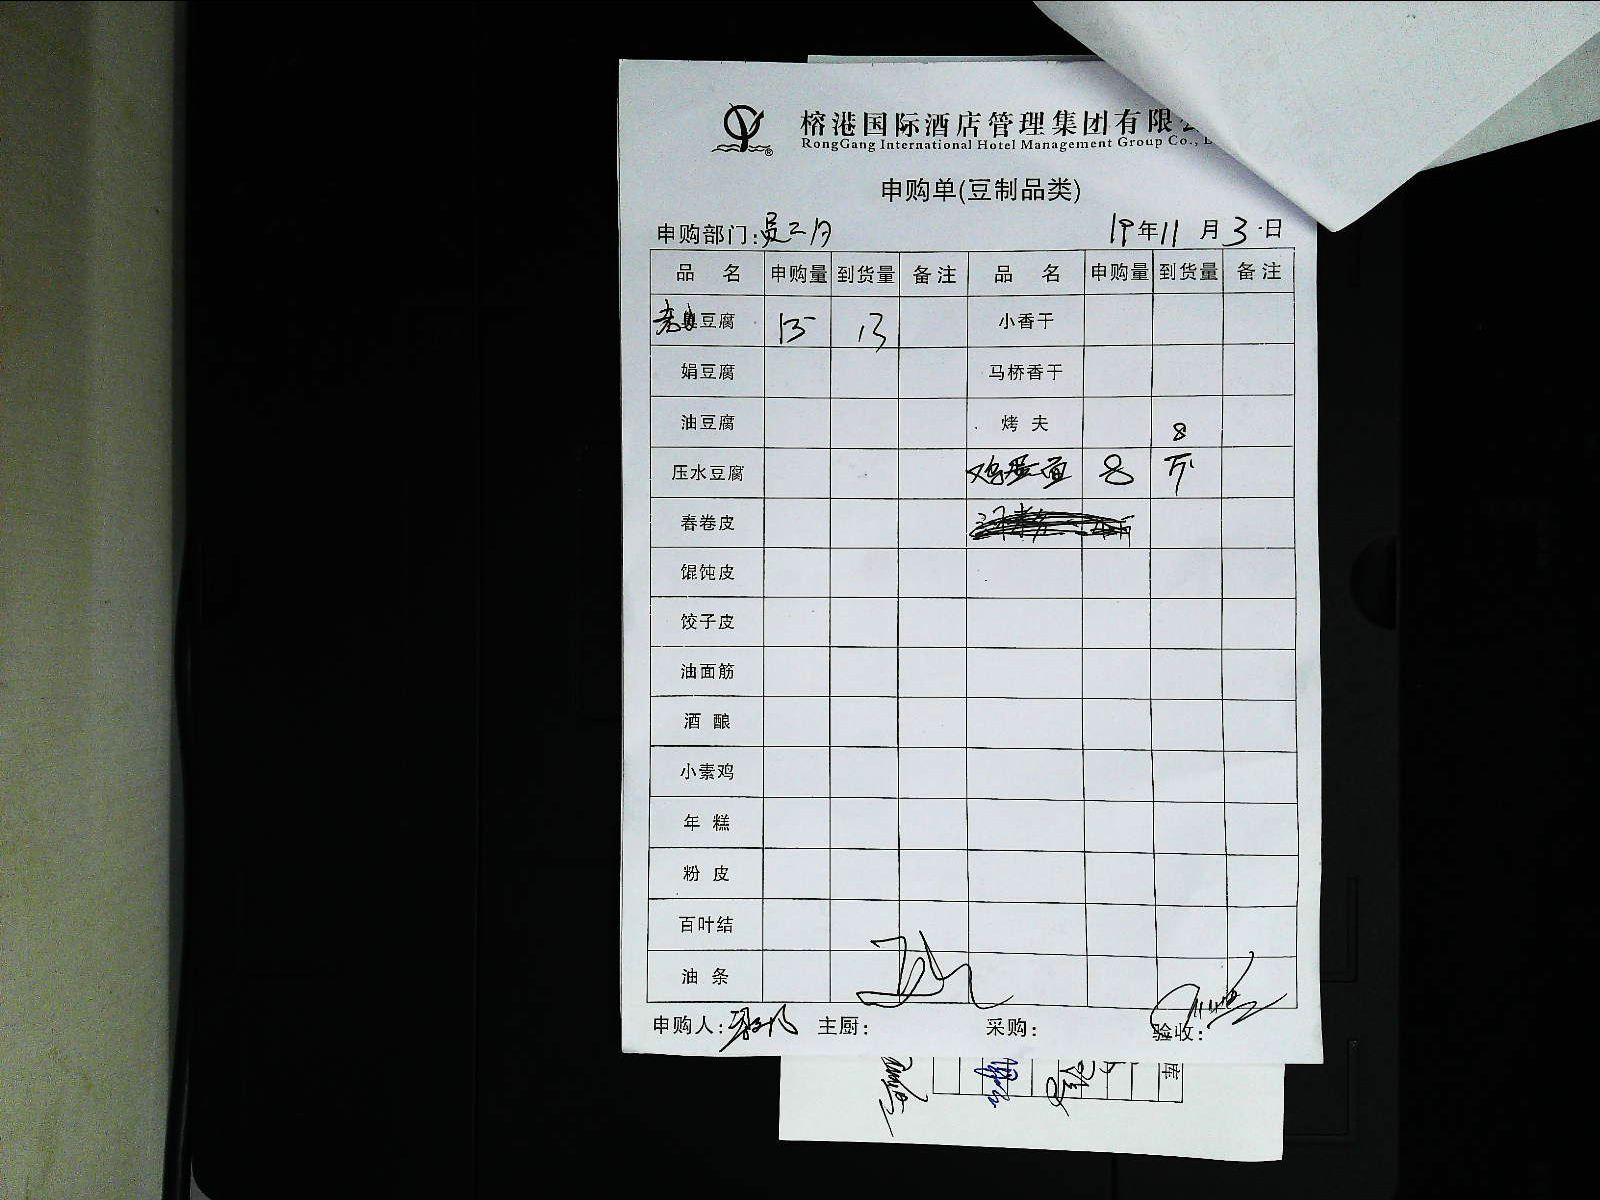 榕港国际酒店管理集团有限
RongGang International Hotel Management Group Co.,
申购单(豆制品类)
申购部门: 19年11月3日
品名 申购量 到货量 备注 品名 申购量 到货量 备注
老豆腐 15 13 小香干
娟豆腐 马桥香干
油豆腐 烤夫
压水豆腐 鸡蛋面 8 8斤
春卷皮
馄饨皮
饺子皮
油面筋
酒酿
小素鸡
年糕
粉皮
百叶结
油条
申购人: 主厨: 采购: 验收:
库